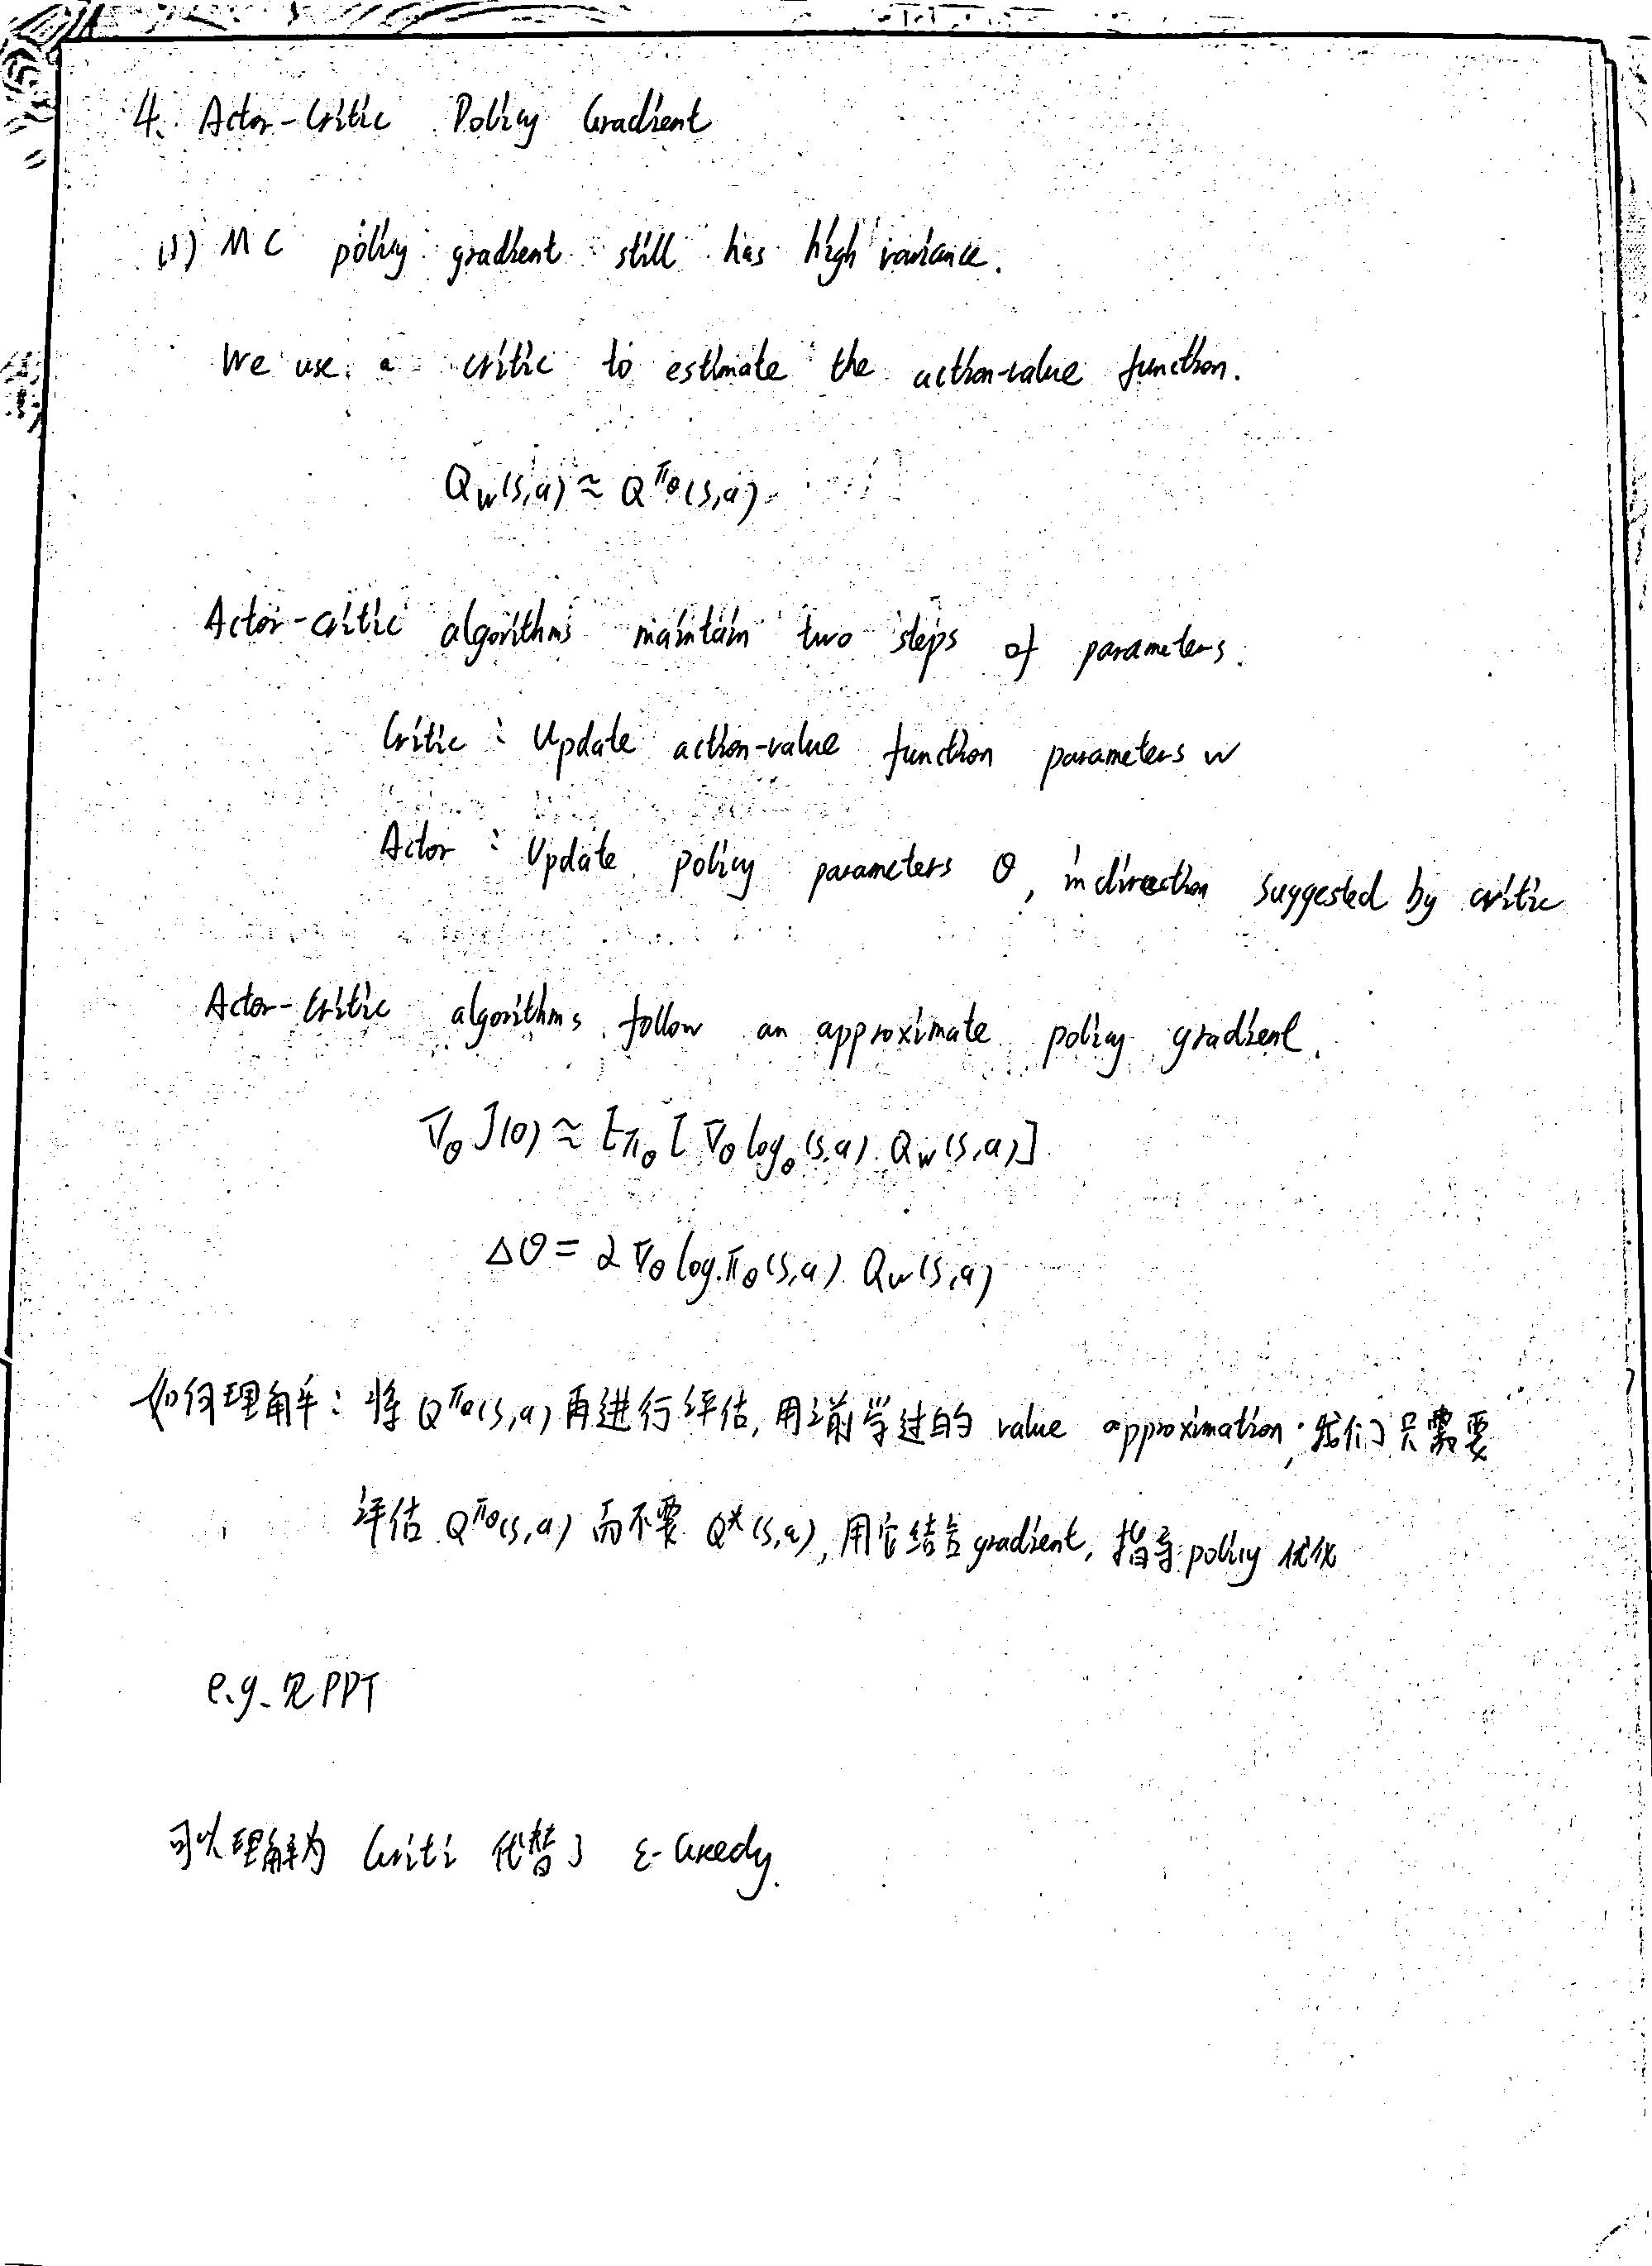 4. Actor-Critic Policy Gradient
(1) MC policy gradient still has high variance.
We use a critic to estimate the action-value function.
Q_w(s,a) ≈ Q^{π_θ}(s,a).
Actor-critic algorithms maintain two steps of parameters.
Critic : Update action-value function parameters w
Actor : Update policy parameters θ, in direction suggested by critic
Actor-Critic algorithms follow an approximate policy gradient.
∇_θ J(θ) ≈ E_{π_θ} [ ∇_θ log_θ(s,a). Q_w(s,a)]
Δθ = α ∇_θ log π_θ(s,a). Q_w(s,a)
如何理解: 将 Q^{π_θ}(s,a) 再进行评估, 用之前学过的 value approximation, 我们只需要
评估 Q^{π_θ}(s,a) 而不要 Q*(s,a), 用它结合gradient, 指导policy 优化
e.g. 见PPT
可以理解为 Criti 代替了 ε-Greedy.